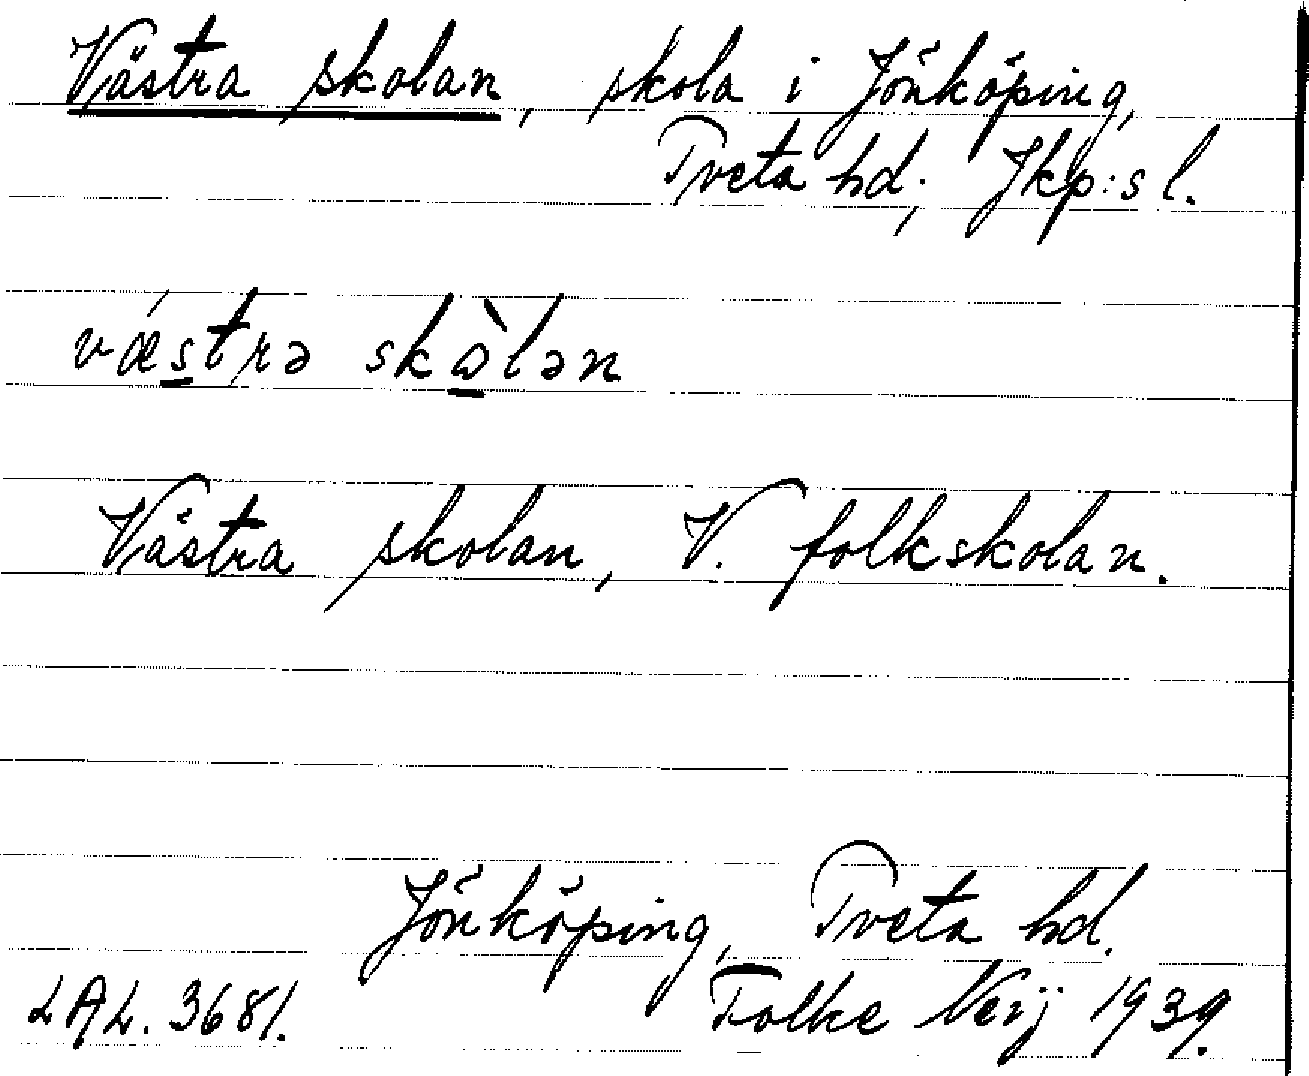 Västra skolan, skola i Jönköping,
Tveta hd; Jkp:s l.
vǽstrə skòlən
Västra skolan, V. folkskolan.
Jönköping, Tveta hd.
LAL. 3681. Folke Neij 1939.